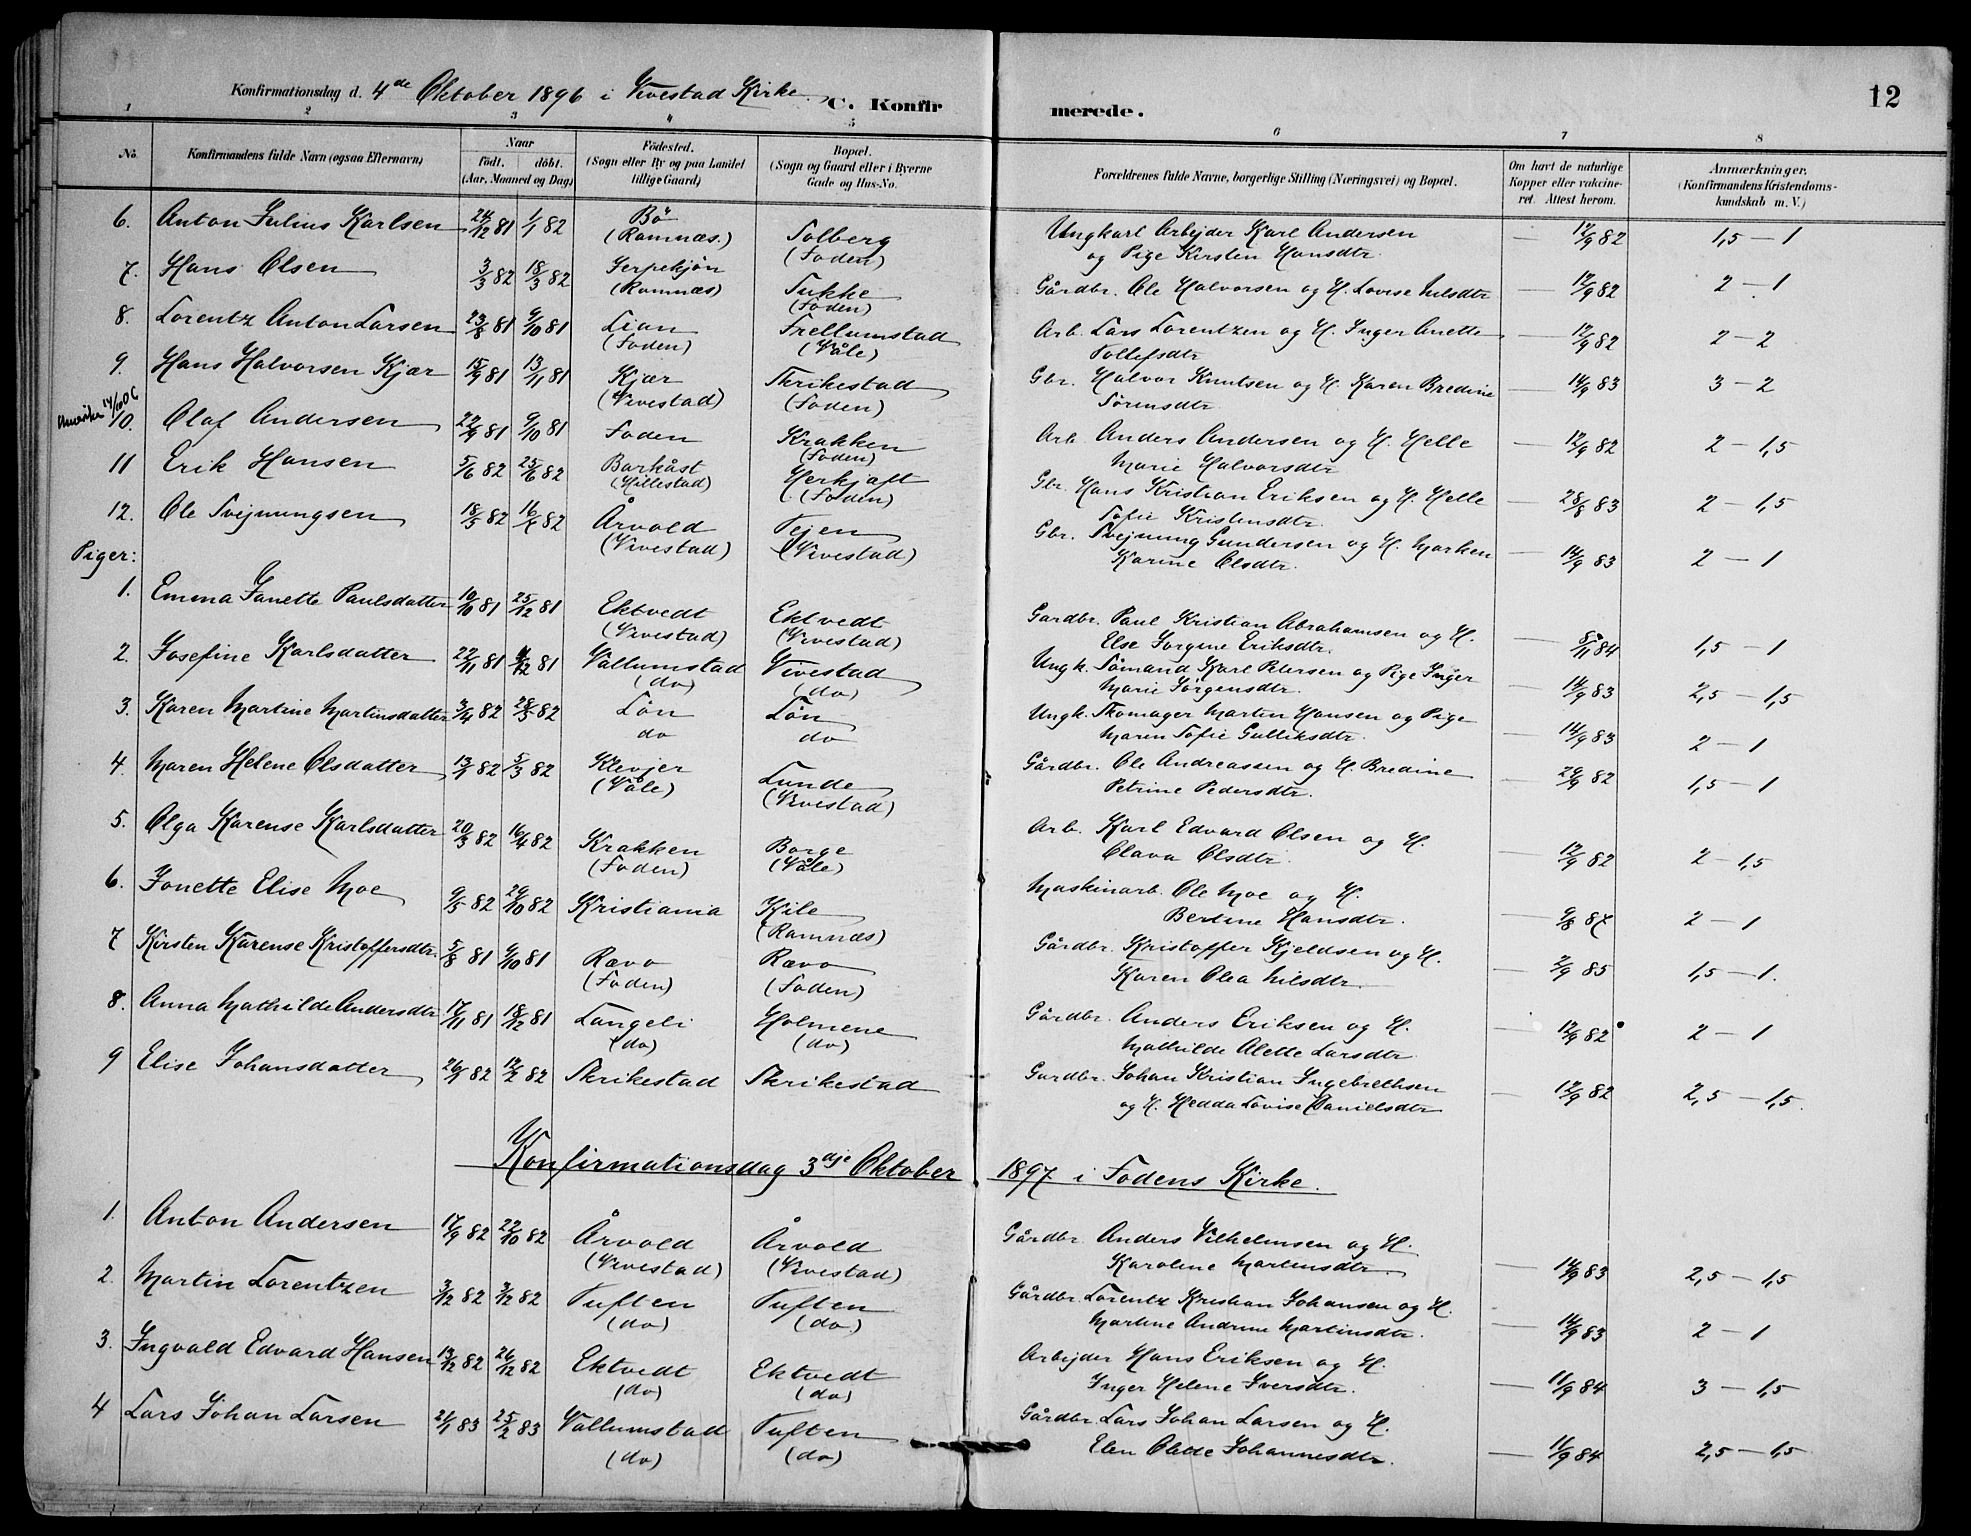 Konfirmationsdag d. 4de Oktober 1896 i Vivestad Kirke. C. Konfirmerede. 12
1 2 3 4 5 6 7 8
No. Konfirmandens fulde Navn (ogsaa Efternavn) Naar födt. döbt. (Aar, Maaned og Dag) Födested. (Sogn eller By og paa Landet tillige Gaard) Bopæl. (Sogn og Gaard eller i Byerne Gade og Hus-No. Forældrenes fulde Navne, borgerlige Stilling (Næringsvei) og Bopæl. Om havt de naturlige Kopper eller vakcineret. Attest herom. Anmærkninger. (Konfirmandens Kristendomskundskab m. V.)
6. Anton Julius Karlsen 24/12 81 1/1 82 Bö (Ramnæs.) Solberg (Foden) Ungkarl Arbejder Karl Andersen og Pige Kirsten Hansdtr. — 12/9 82 1,5 — 1
7. Hans Olsen 3/3 82 18/3 82 Jerpekjön (Ramnæs) Tukke (Foden) Gårdbr. Ole Halvorsen og H. Lovise Nilsdtr — 12/9 82 2 — 1
8. Lorentz Anton Larsen 23/8 81 9/10 81 Lian (Foden) Frellumstad (Våle) Arb. Lars Lorentzen og H. Inger Anette Tollefsdtr — 12/9 82 2 — 2
9. Hans Halvorsen Kjær 15/9 81 13/11 81 Kjær (Vivestad) Skrikestad (Foden) Gbr. Halvor Knutsen og H. Karen Bredine Sörensdtr. — 14/9 83 3 — 2
Amerika 14/10 06
10. Olaf Andersen 22/9 81 9/10 81 Foden Krakken (Foden) Arb. Anders Andersen og H. Helle Marie Halvorsdtr — 12/9 82 2 — 1,5
11 Erik Hansen 5/6 82 25/6 82 Barkåst (Hillestad) Herkjøft (Foden) Gbr. Hans Kristian Eriksen og H. Helle Sofie Kristensdtr. — 28/8 83 2 — 1,5
12. Ole Svejnungsen 18/3 82 16/4 82 Årvold (Vivestad) Tejen (Vivestad) Gbr. Svejnung Gundersen og H. Marken Karine Olsdtr. — 14/9 83 2 — 1
Piger:
1. Emma Janette Paulsdatter 10/10 81 25/12 81 Ektvedt (Vivestad) Ektvedt (Vivestad) Gardbr. Paul Kristian Abrahamsen og H. Else Jorgine Eriksdtr. — 8/11 84 1,5 — 1
2. Josefine Karlsdatter 22/11 81 /12 81 Vallumstad (do) Vivestad (do) Ungk. Sömand Karl Petersen og Pige Inger Marie Jörgensdtr. — 14/9 83 2,5 — 1,5
3. Karen Martine Martinsdatter 3/4 82 28/5 82 Lön do Lön do Ungk. Skomager Martin Hansen og Pige Maren Sofie Gulliksdtr. — 14/9 83 2 — 1
4. Maren Helene Olsdatter 13/1 82 5/3 82 Klevjer (Våle) Lunde (Vivestad) Gårdbr. Ole Andreassen og H. Bredine Petrine Pedersdtr. — 29/9 82 1,5 — 1
5. Olga Karense Karlsdatter 20/3 82 16/4 82 Krakken (Foden) Borge (Våle) Arb. Karl Edvard Olsen og H. Olava Olsdtr. — 12/9 82 2 — 1,5
6. Jonette Elise Moe 9/5 82 29/10 82 Kristiania Kile (Ramnæs) Maskinarb. Ole Moe og H. Bertine Hansdtr. — 9/8 87 2 — 1
7 Kirsten Karense Kristoffersdtr. 5/8 81 9/10 81 Rævo (Foden) Rævo (Foden) Gårdbr. Kristoffer Kjeldsen og H. Karen Olea Nilsdtr. — 2/9 85 1,5 — 1.
8. Anna Mathilde Andersdtr 17/11 81 18/12 81 Langeli (do) Holmene (do) Gårdbr. Anders Eriksen og H. Mathilde Alette Larsdtr — 12/9 82 2 — 1
9 Elise Johansdatter 26/1 82 12/2 82 Skrikestad Skrikestad Gardbr. Johan Kristian Ingebrethsen og H. Hedda Lovise Danielsdtr — 12/9 82 2,5 — 1,5.
Konfirmationsdag 3dje Oktober 1897 i Fodens Kirke.
1. Anton Andersen 17/9 82 22/10 82 Årvold (Vivestad) Årvold (Vivestad) Gårdbr. Anders Vilhelmsen og H. Karoline Martinsdtr. — 14/9 83 2,5 — 1,5
2. Martin Lorentzen 3/12 82 3/12 82 Tuften (do) Tuften (do.) Gårdbr. Lorentz Kristian Johansen og H. Martine Andrine Martinsdtr. — 14/9 83 2 — 1
3. Ingvald Edvard Hansen 13/12 82 26/12 82 Ektvedt (do) Ektvedt (do) Arbejder Hans Eriksen og H. Inger Helene Iversdtr. — 11/9 84 3 — 1,5
4 Lars Johan Larsen 21/1 83 25/2 83 Vallumstad (do) Tuften (do) Gårdbr. Lars Johan Larsen og H. Elen Olette Johannesdtr. — 11/9 84 2,5 — 1,5